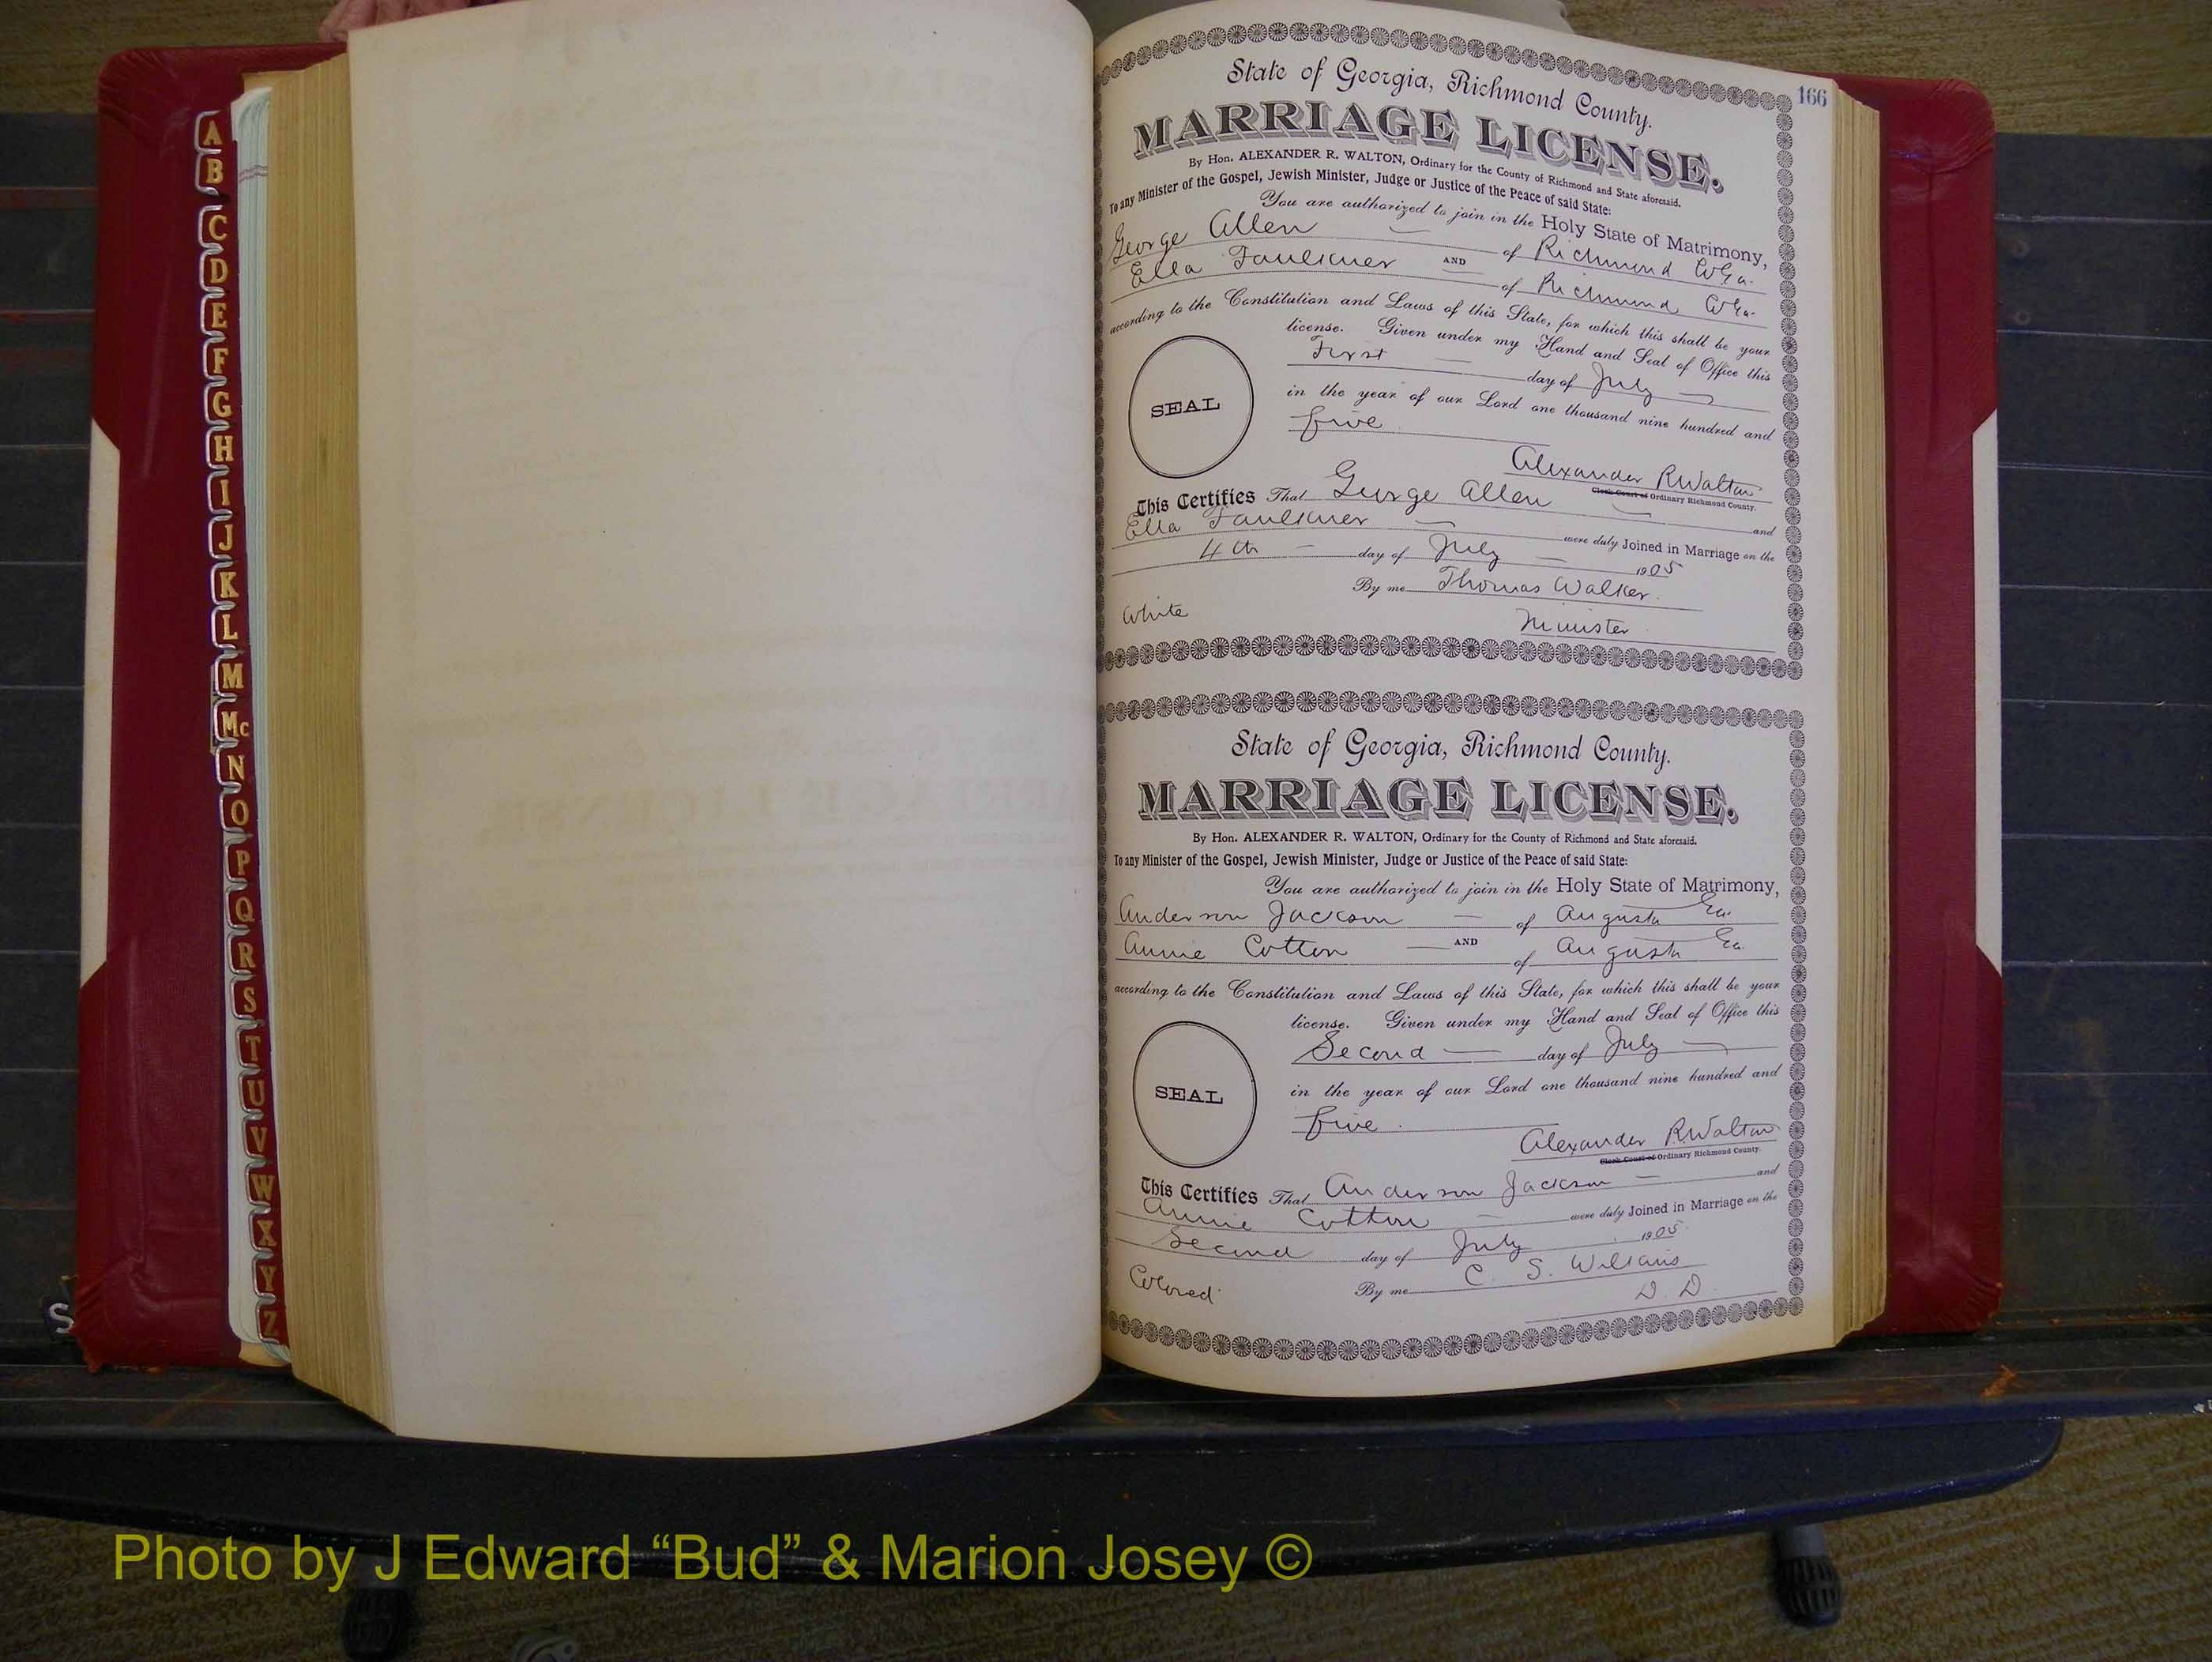 A
B
C
D
E
F
G
H
I
J
K
L
M
Mc
N
O
P
Q
R
S
T
U
V
W
X
Y
Z
S
166
State of Georgia, Richmond County.
MARRIAGE LICENSE.
By Hon. ALEXANDER R. WALTON, Ordinary for the County of Richmond and State aforesaid.
To any Minister of the Gospel, Jewish Minister, Judge or Justice of the Peace of said State:
You are authorized to join in the Holy State of Matrimony,
George Allen of Richmond Co Ga.
AND
Ella Faulkner of Richmond Co Ga.
according to the Constitution and Laws of this State, for which this shall be your
license. Given under my Hand and Seal of Office this
First day of July
in the year of our Lord one thousand nine hundred and
five
SEAL
Alexander R Walton
Clerk Court of Ordinary Richmond County.
This Certifies That George Allen and
Ella Faulkner were duly Joined in Marriage on the
4th day of July 1905
By me Thomas Walker.
White
Minister
State of Georgia, Richmond County.
MARRIAGE LICENSE.
By Hon. ALEXANDER R. WALTON, Ordinary for the County of Richmond and State aforesaid.
To any Minister of the Gospel, Jewish Minister, Judge or Justice of the Peace of said State:
You are authorized to join in the Holy State of Matrimony,
Anderson Jackson of Augusta Ga.
AND
Annie Cotton of Augusta Ga
according to the Constitution and Laws of this State, for which this shall be your
license. Given under my Hand and Seal of Office this
Second day of July
in the year of our Lord one thousand nine hundred and
five.
SEAL
Alexander R Walton
Clerk Court of Ordinary Richmond County.
This Certifies That Anderson Jackson and
Annie Cotton were duly Joined in Marriage on the
Second day of July 1905
By me C. S. Wilkins
Colored
D. D.
Photo by J Edward “Bud” & Marion Josey ©